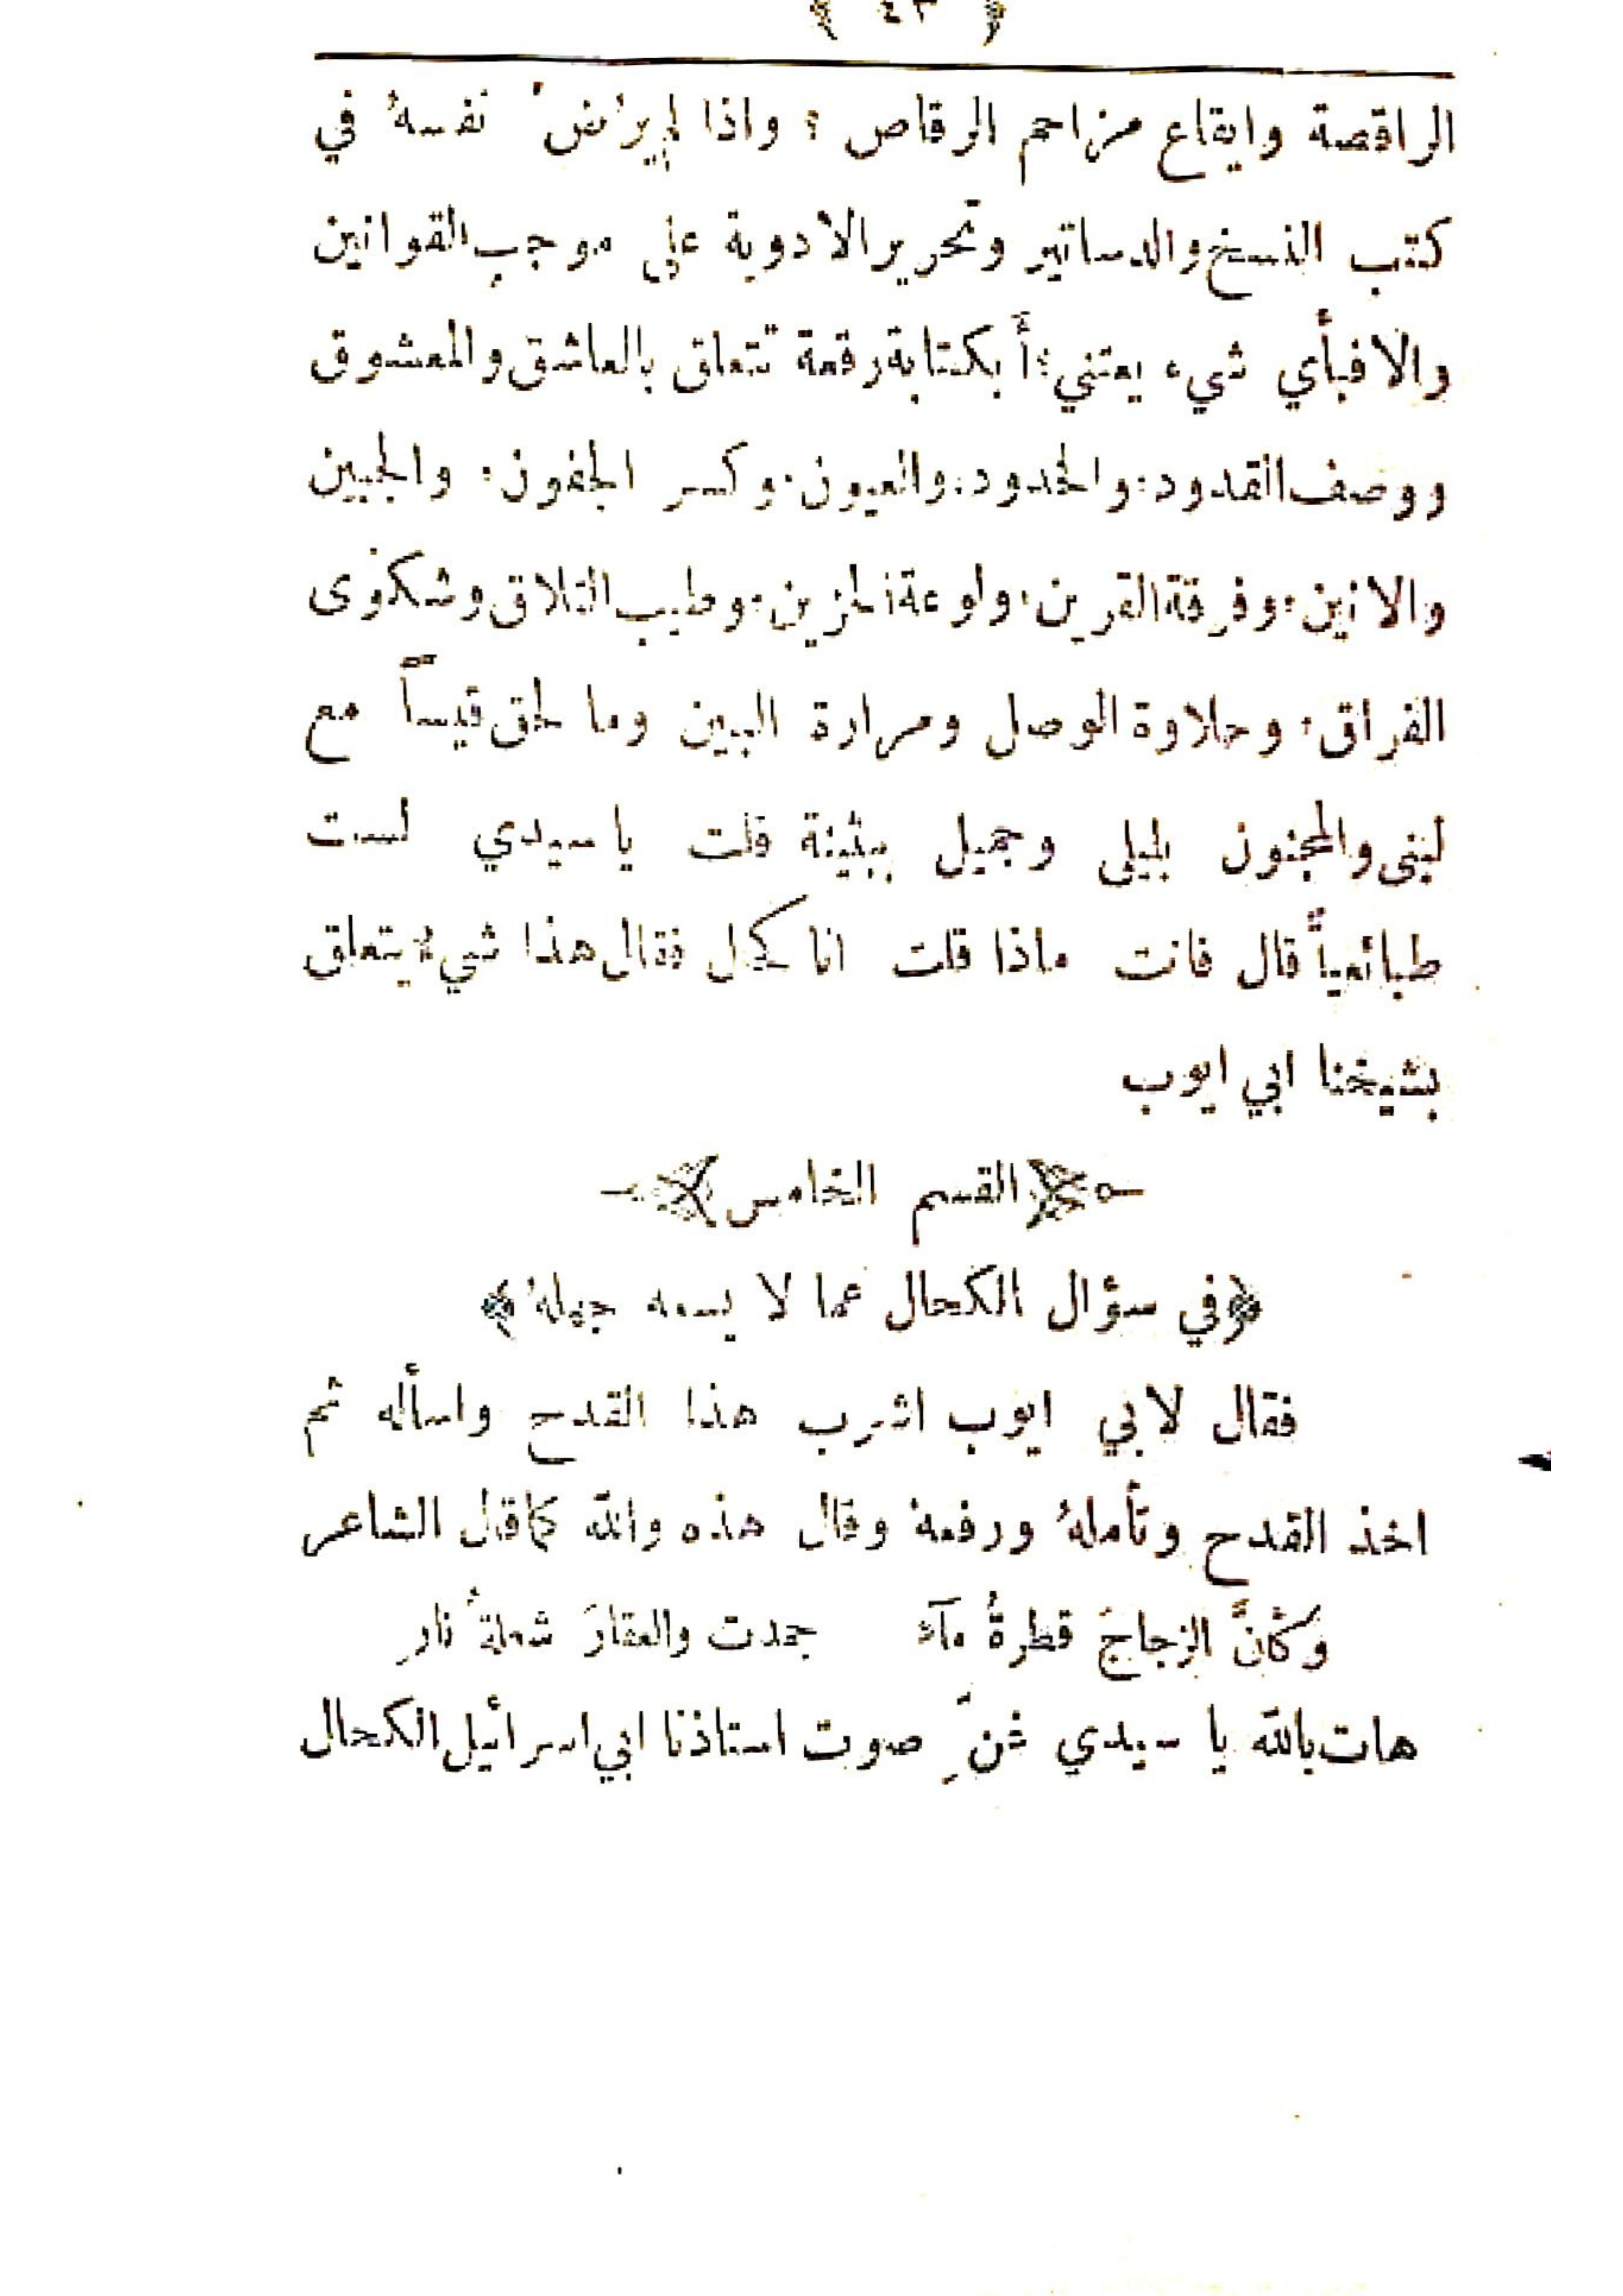 ﴿ ٤٣ ﴾
الراقصة وايقاع مزاحم الرقاص ؟ واذا لم يرُض نفسهُ في
كتب النسخ والدساتير وتحرير الأدوية على موجب القوانين
والا فبأي شيء يعتني؟ أ بكتابة رقعة تتعلق بالعاشق والمعشوق
ووصف القدود، والخدود، والعيون، وكسر الجفون، والجبين
والانين، وفرقة القرين، ولوعة الحزين، وطيب التلاق وشكوى
الفراق، وحلاوة الوصل ومرارة البين وما لحق قيساً مع
لبنى والمجنون بليلى وجميل ببثينة قلت يا سيدي لست
طبائعياً قال فانت ماذا قلت انا كحال فقال هذا شيءٌ يتعلق
بشيخنا ابي ايوب
القسم الخامس
﴿ في سؤال الكحال عما لا يسعه جهلهُ ﴾
فقال لابي ايوب اشرب هذا القدح واسأله ثم
اخذ القدح وتأملهُ ورفعهُ وقال هذه والله كما قال الشاعر
وكأنَّ الزجاجَ قطرةُ مآء جمدت والعقارَ شعلةُ نارِ
هات بالله يا سيدي غنِّ صوت استاذنا ابي اسرائيل الكحال